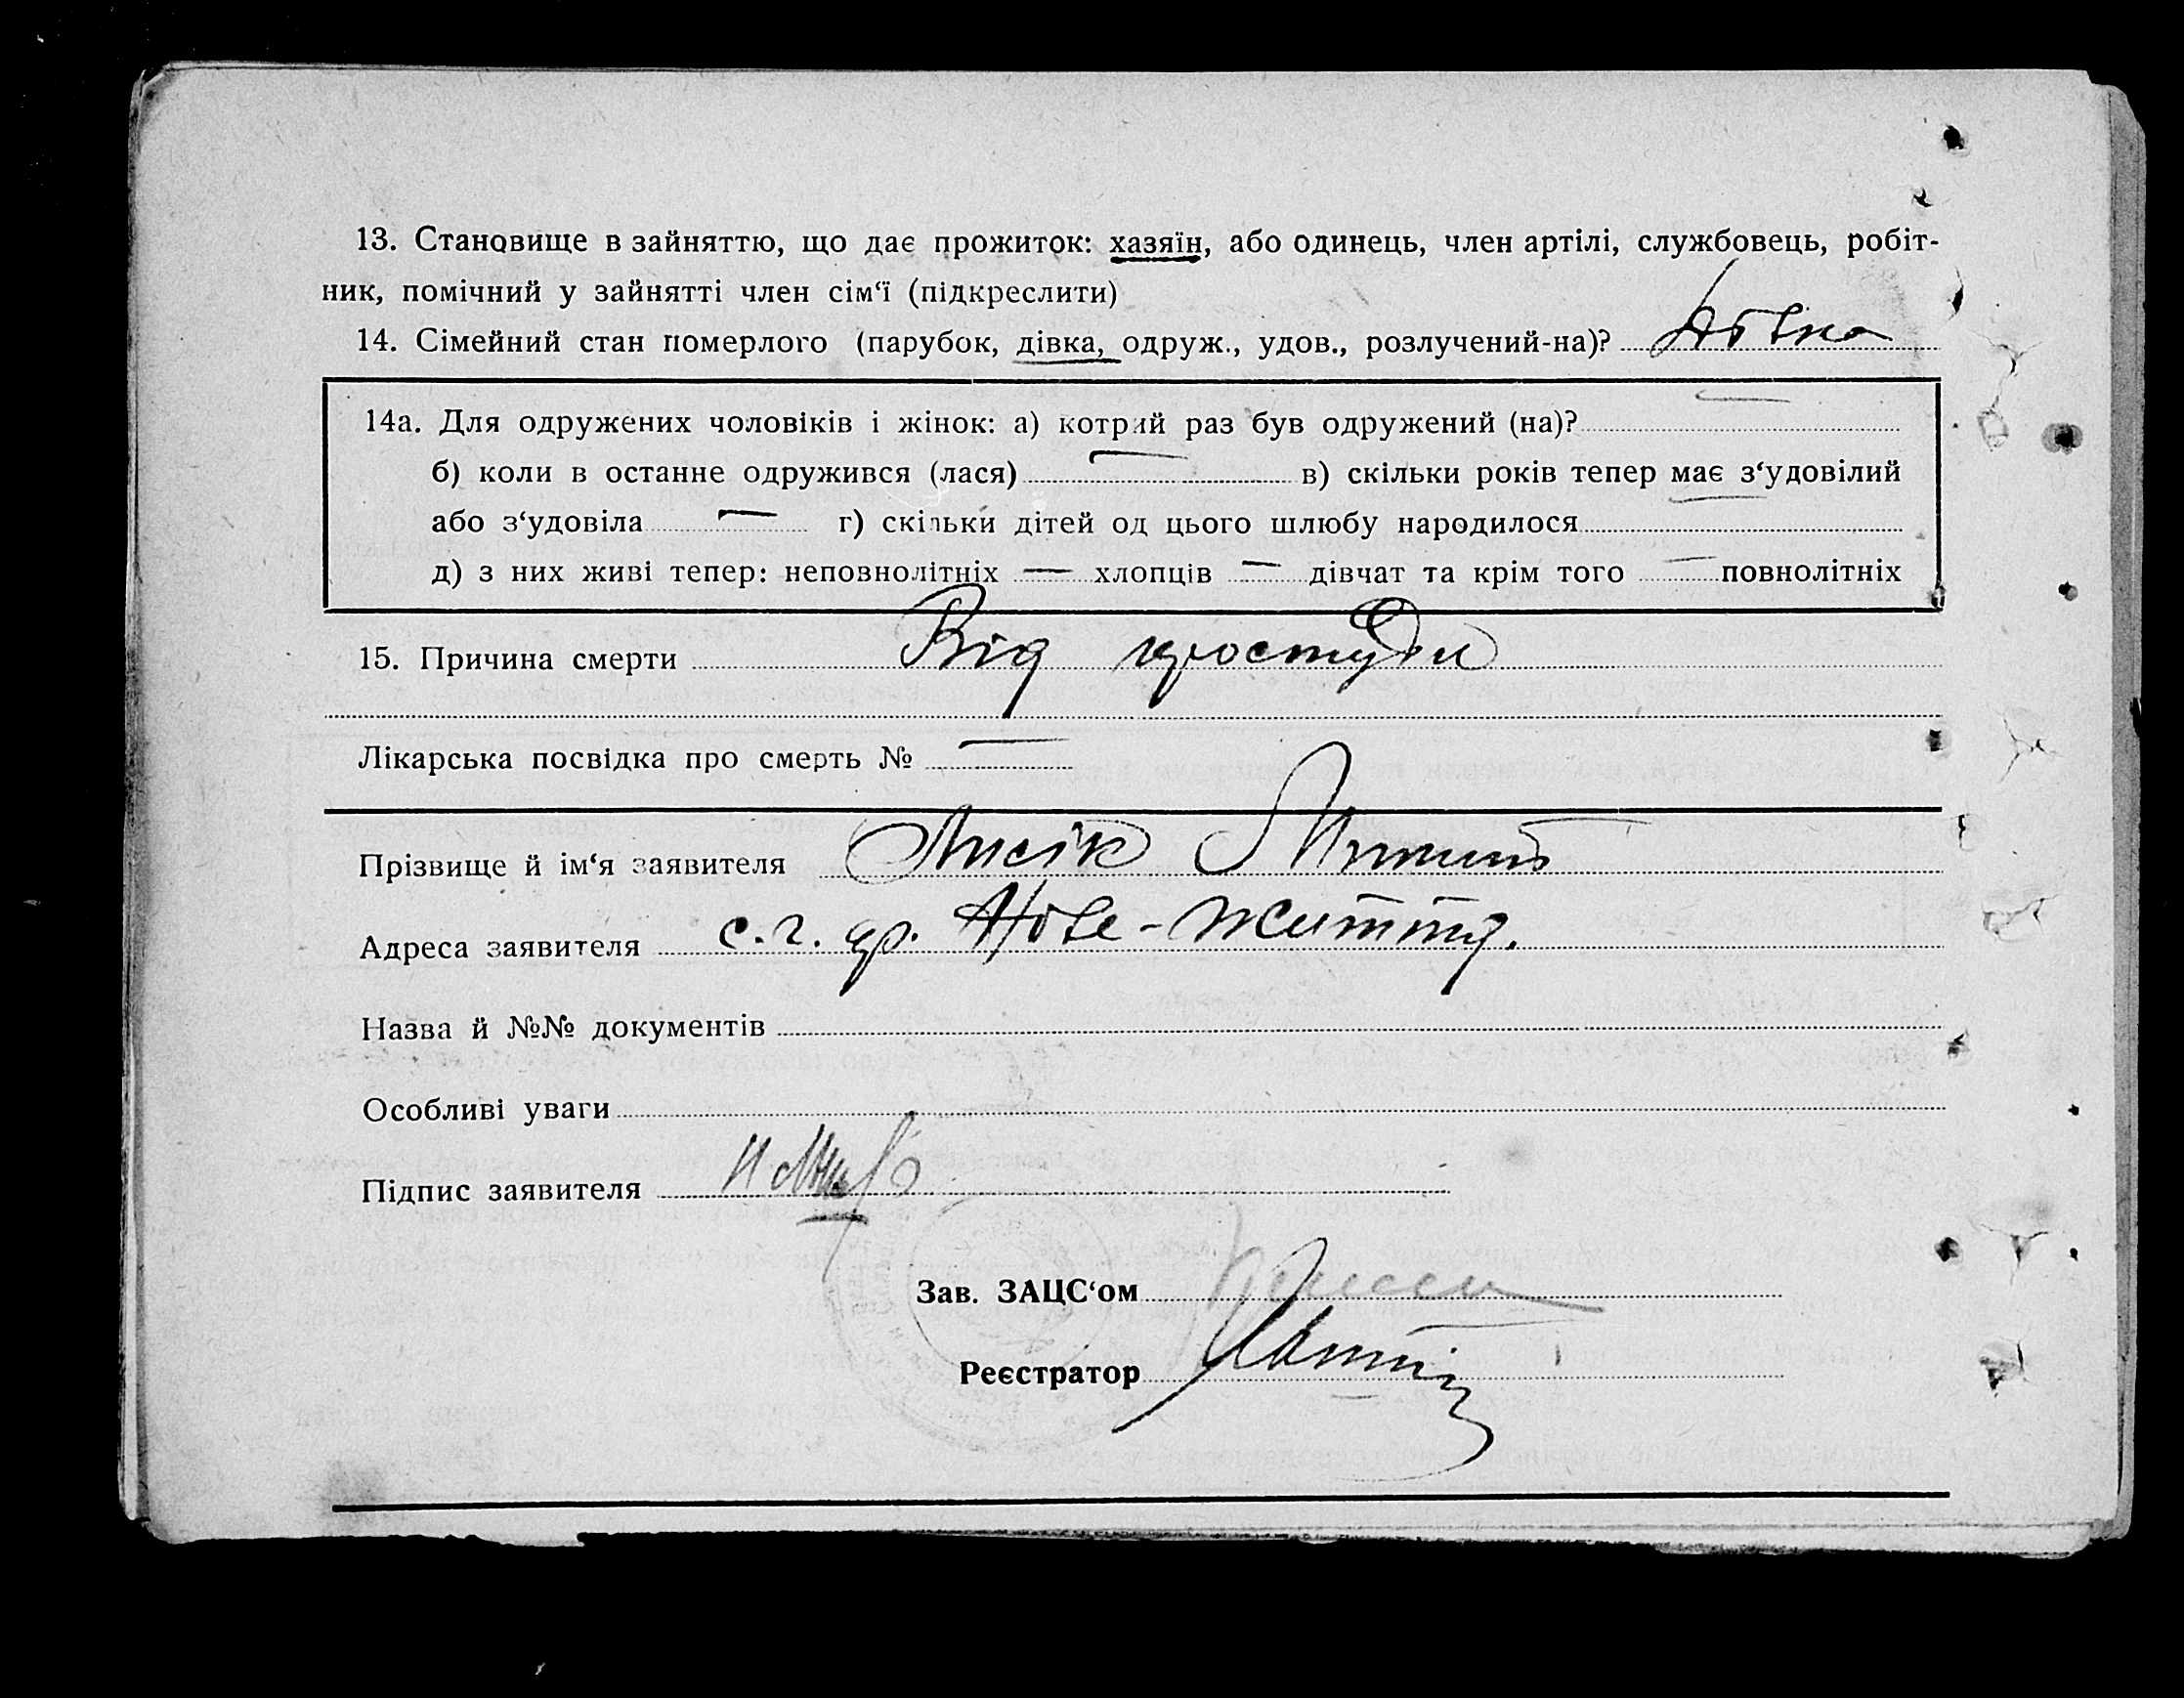 13. Становище в зайняттю, що дає прожиток: хазяїн, або одинець, член артілі, службовець, робіт-
ник, помічний у зайнятті член сім‘ї (підкреслити)
14. Сімейний стан померлого (парубок, дівка, одруж., удов., розлучений-на)? дівка
14а. Для одружених чоловіків і жінок: а) котрий раз був одружений (на)? —
б) коли в останне одружився (лася) — в) скільки років тепер має з‘удовілий
або з‘удовіла — г) скільки дітей од цього шлюбу народилося —
д) з них живі тепер: неповнолітніх — хлопців — дівчат та крім того — повнолітніх
15. Причина смерти Від простуди
Лікарська посвідка про смерть № —
Прізвище й ім‘я заявителя Лисік
Адреса заявителя с. г. ар. Нове-Життя.
Назва й №№ документів
Особливі уваги
Підпис заявителя
Зав. ЗАЦС‘ом
Реєстратор